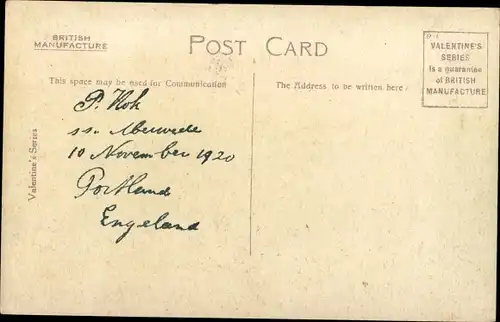 BRITISH
MANUFACTURE
POST CARD
VALENTINE'S
SERIES
is a guarantee
of BRITISH
MANUFACTURE
This space may be used for Communication
The Address to be written here
P. Kok
ss. Merwede
10 November 1920
Portland
Engeland
Valentine's Series